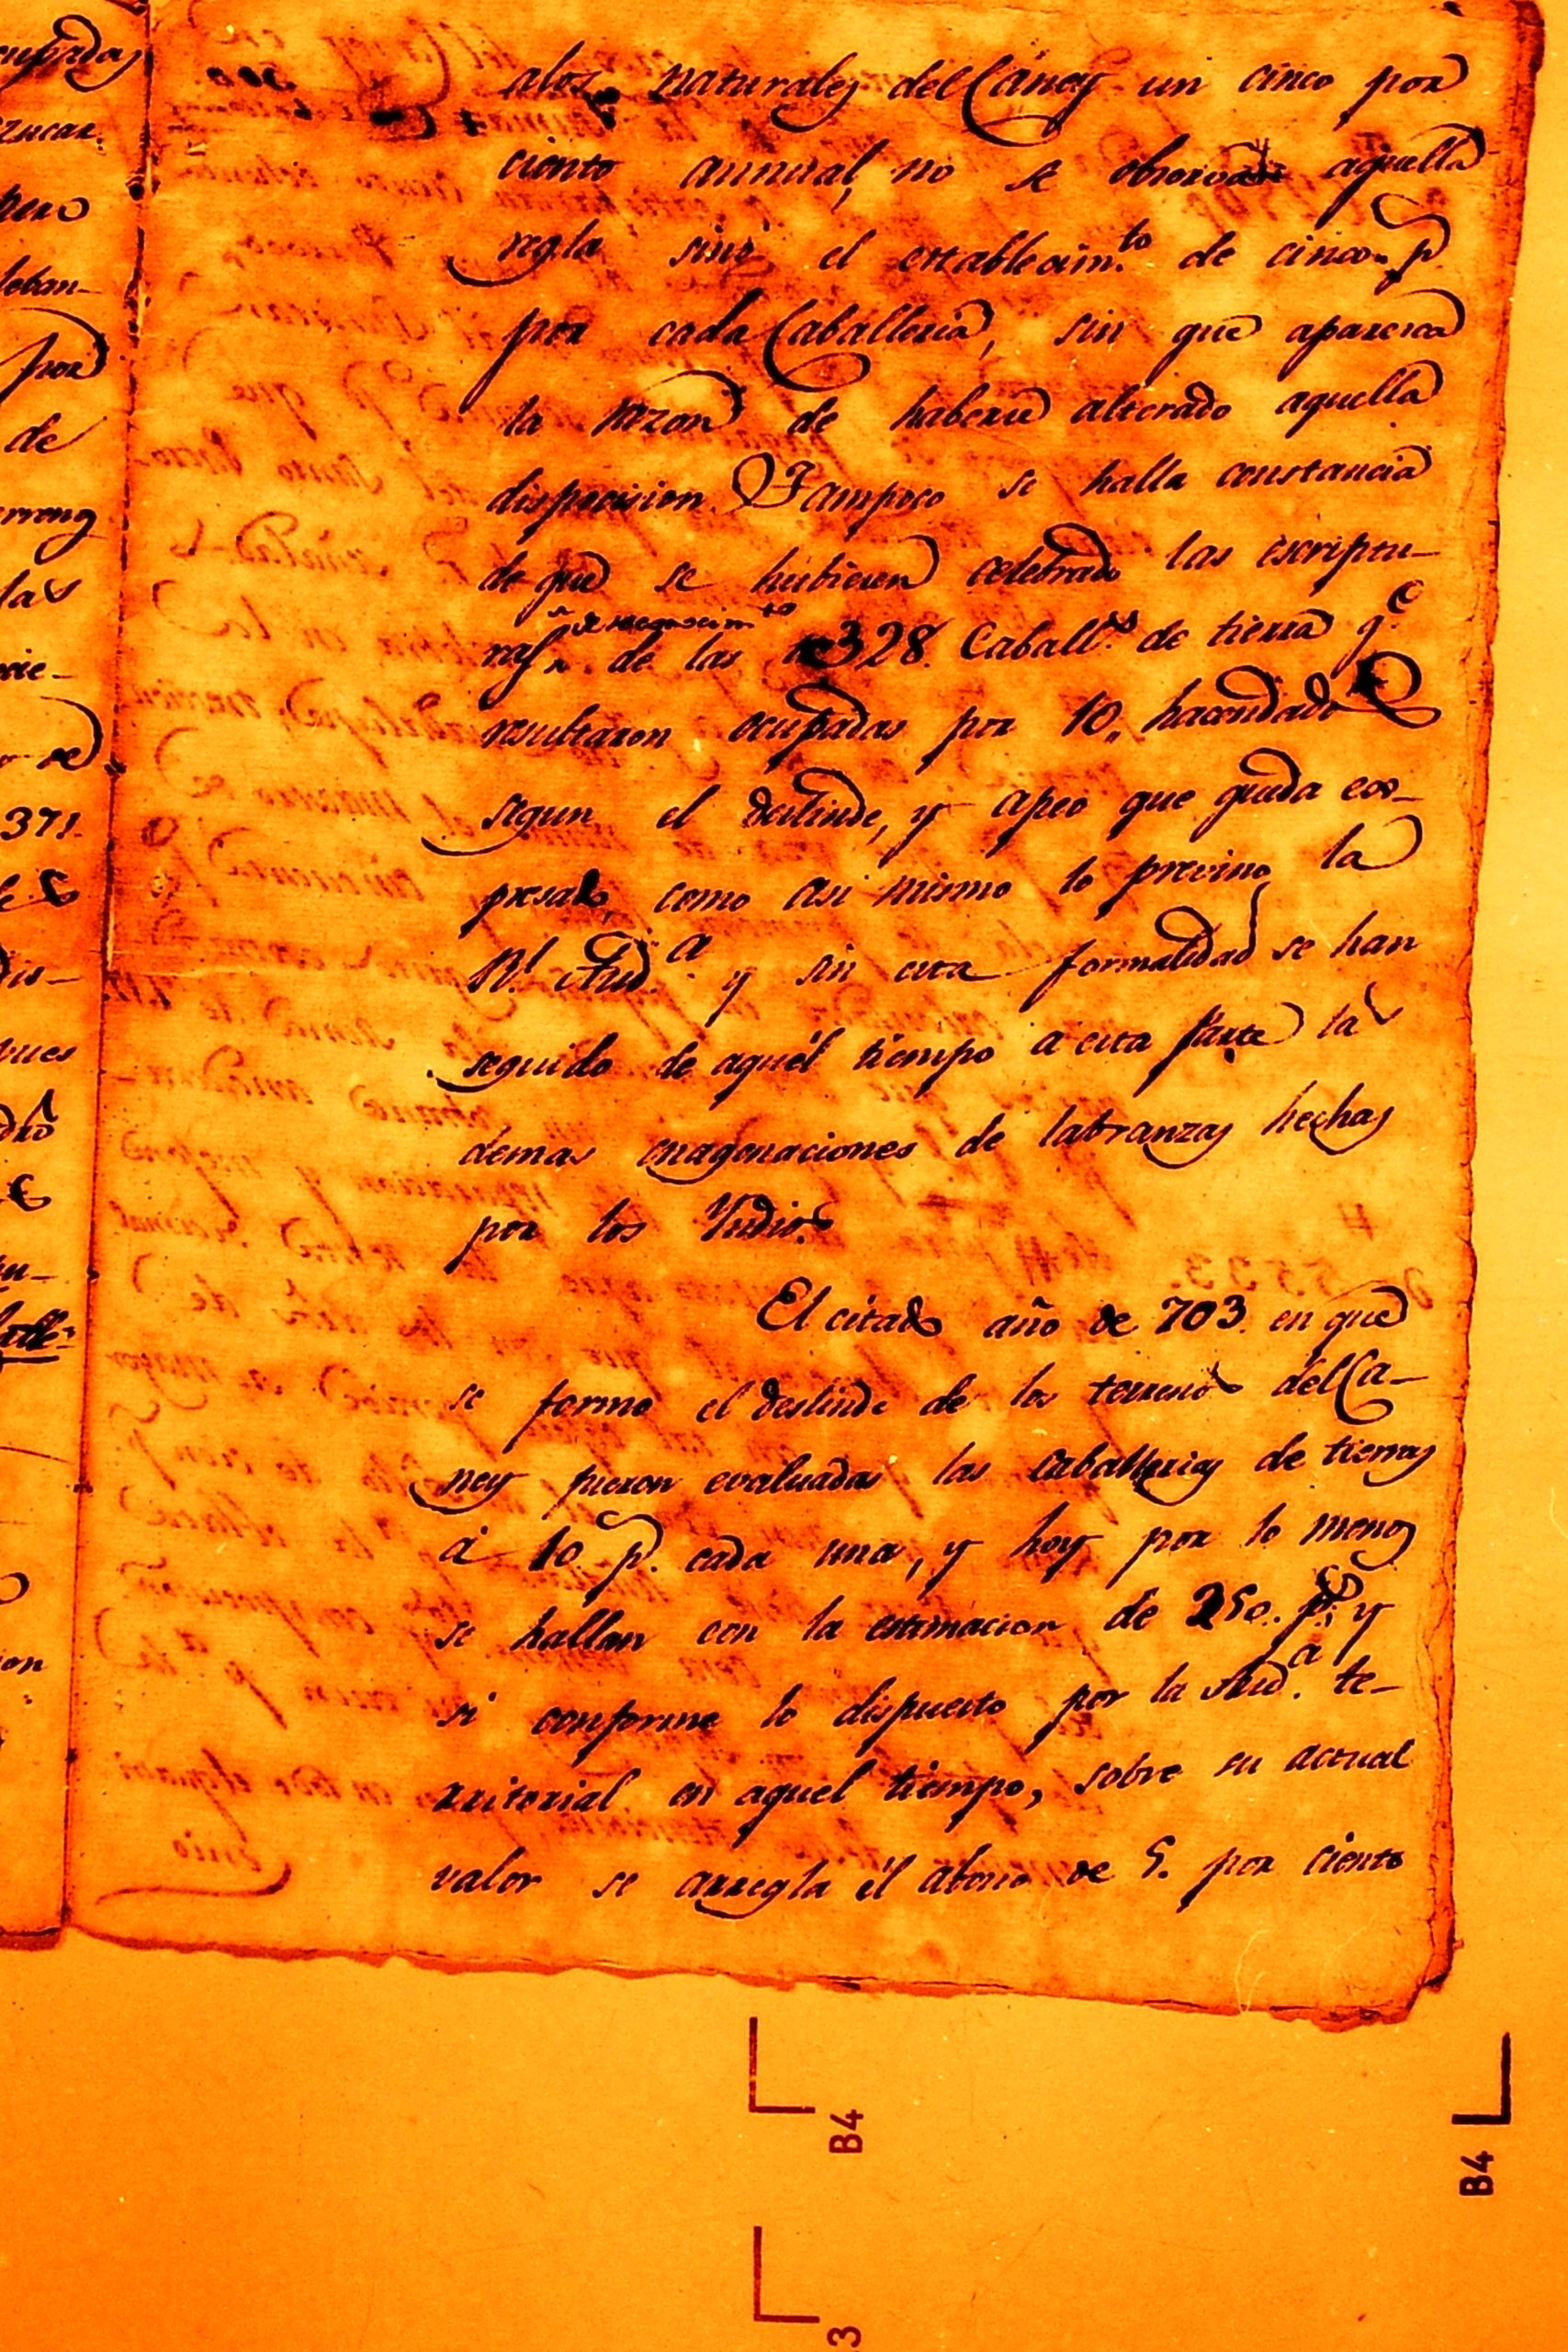 alos naturales del Caney un cinco por
ciento annual, no se observa aquella
regla sino el establecim.to de cinco p.s
por cada Caballeria, sin que aparesca
la razon de haberse alterado aquella
disposicion. Tampoco se halla constancia
de que se hubiesen celebrado las escriptu-
de reconocim.to
ras de las 328. Caball.s de tierra q.e
resultaron ocupadas por 10,, hacendados
segun el deslinde, y apeo que queda ex-
presado, como asi mismo lo previno la
R.l Aud.a y sin esta formalidad se han
seguido de aquel tiempo a esta parte las
demas enagenaciones de labranzas hechas
por los Yndios.
El citado año de 703. en que
se formo el deslinde de los terrenos del Ca-
ney fueron evaluadas las caballerias de tierras
á 10 p.s cada una, y hoy por lo menos
se hallan con la estimacion de 250. p.s y
si conforme lo dispuesto por la Aud.a te-
rritorial en aquel tiempo, sobre su actual
valor se arregla él abono de 5. por ciento
cupadas
zucar.
pero
leban-
por
de
las
371.
dis-
pues
B4
B4
3